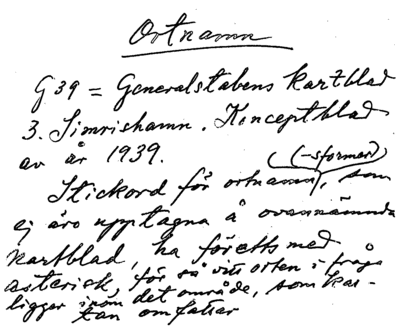 Ortnamn
G 39 = Generalstabens kartblad
3. Simrishamn. Konceptblad
av år 1939.
(-sformer)
Stickord för ortnamn, som
ej äro upptagna å ovannämnda
kartblad, ha försetts med
asterisk, för så vitt orten i fråga
ligger inom det område, som kar-
tan omfattar